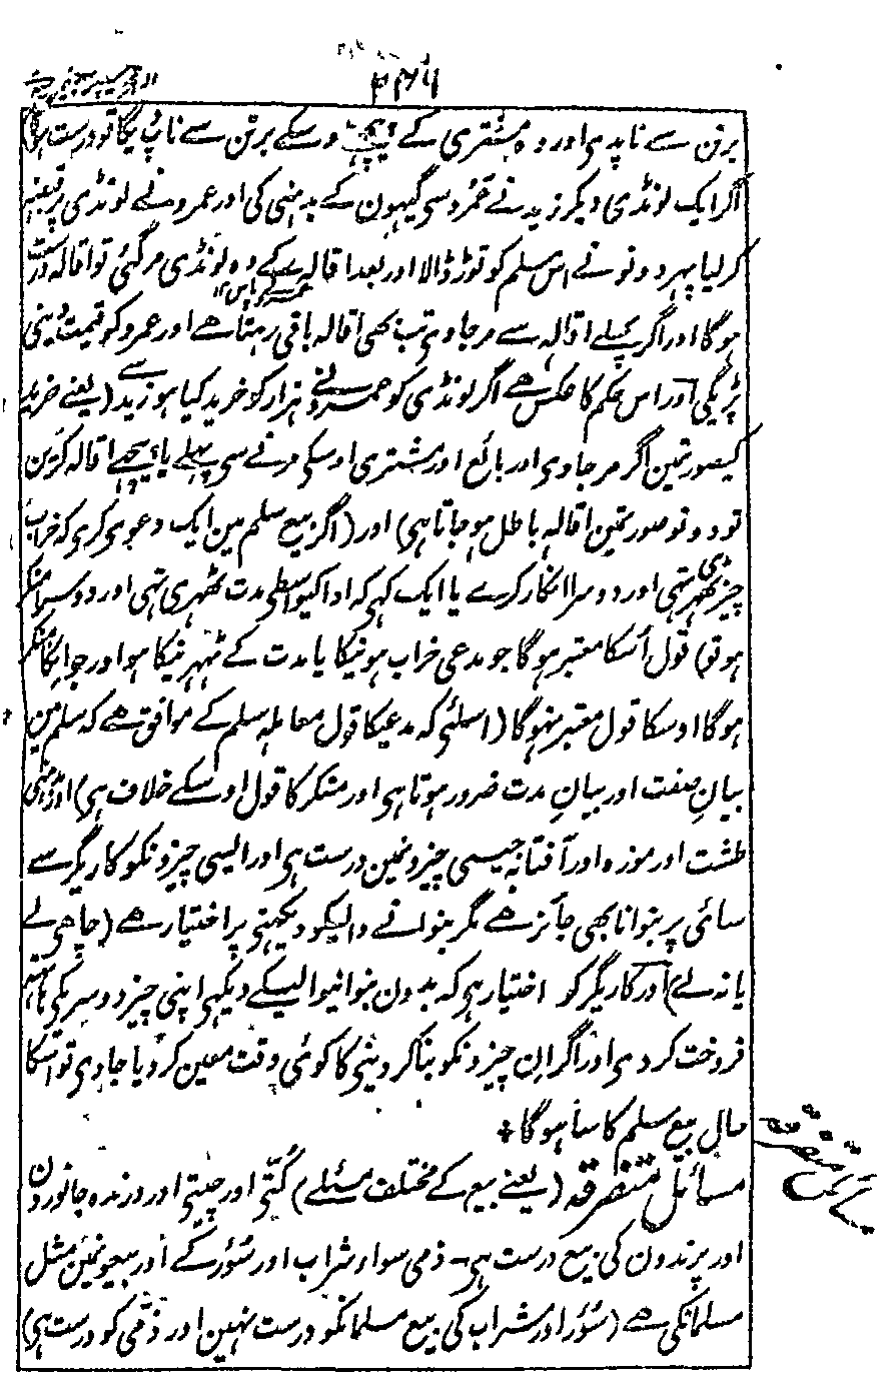 ۲۴۶
برتن سے ناپدی اور وہ مشتری کے پیچھے اوسکے برتن سے ناپ لیگا تو درست ہوگا
اگر ایک لونڈی دیکر زید نے عمرو سی گیہون کے بدہنی کی اور عمرو نے لونڈی پر قبضہ
کر لیا پہر دونو نے اس سلم کو توڑ ڈالا اور بعد اقالہ کے وہ لونڈی عمرو کے پاس مر گئی تو اقالہ درست
ہوگا اور اگر پہلے اقالہ سے مر جاوی تب بھی اقالہ باقی رہتا ہے اور عمرو کو قیمت دینی
پڑیگی اور اس حکم کا عکس ہے اگر لونڈی کو عمرو نے ہزار کو خرید کیا ہو زید سے (یعنے خرید
کیصورتمین اگر مر جاوی اور بائع اور مشتری اوسکی مرنے سی پہلے یا پیچھے اقالہ کرین
تو دونو صورتمین اقالہ باطل ہو جاتا ہی) اور (اگر بیع سلم مین ایک دعوی کری کہ خراب
چیز ٹھہری تہی اور دوسرا انکار کرے یا ایک کہی کہ ادا کیواسطی مدت ٹھہری تہی اور دوسرا منکر
ہو تو) قول اُسکا معتبر ہوگا جو مدعی خراب ہونیکا یا مدت کے ٹھہرنیکا ہو اور جو انکا منکر
ہوگا اوسکا قول معتبر نہوگا (اسلئے کہ مدعیکا قول معاملہ سلم کے موافق ہے کہ سلم مین
بیان صفت اور بیان مدت ضرور ہوتا ہی اور منکر کا قول اوسکے خلاف ہی) اور بدہنی
طشت اور موزہ اور آفتابہ جیسی چیزونمین درست ہی اور ایسی چیزونکو کاریگر سے
سائی پر بنوانا بھی جائز ہے مگر بنوانے والیکو دیکہنی پر اختیار ہے (چاہی لے
یا نہ لے) اور کاریگر کو اختیار ہی کہ بدون بنوانیوالیکے دیکہی اپنی چیز دوسریکی ہاتھ
فروخت کر دی اور اگر ان چیزونکو بنا کر دینی کا کوئی وقت معین کر دیا جاوی تو اسکا
حال بیع سلم کا سا ہوگا +
مسائل متفرقہ
مسائل متفرقہ (یعنے بیع کے مختلف مسئلے) کُتّی اور چیتی اور درندہ جانورون
اور پرندون کی بیع درست ہی ـ ذمی سواء شراب اور سُوَر کے اور بیعونمین مثل
مسلمانکی ہے (سُوَر اور شراب کی بیع مسلمانکو درست نہین اور ذمّی کو درست ہی)